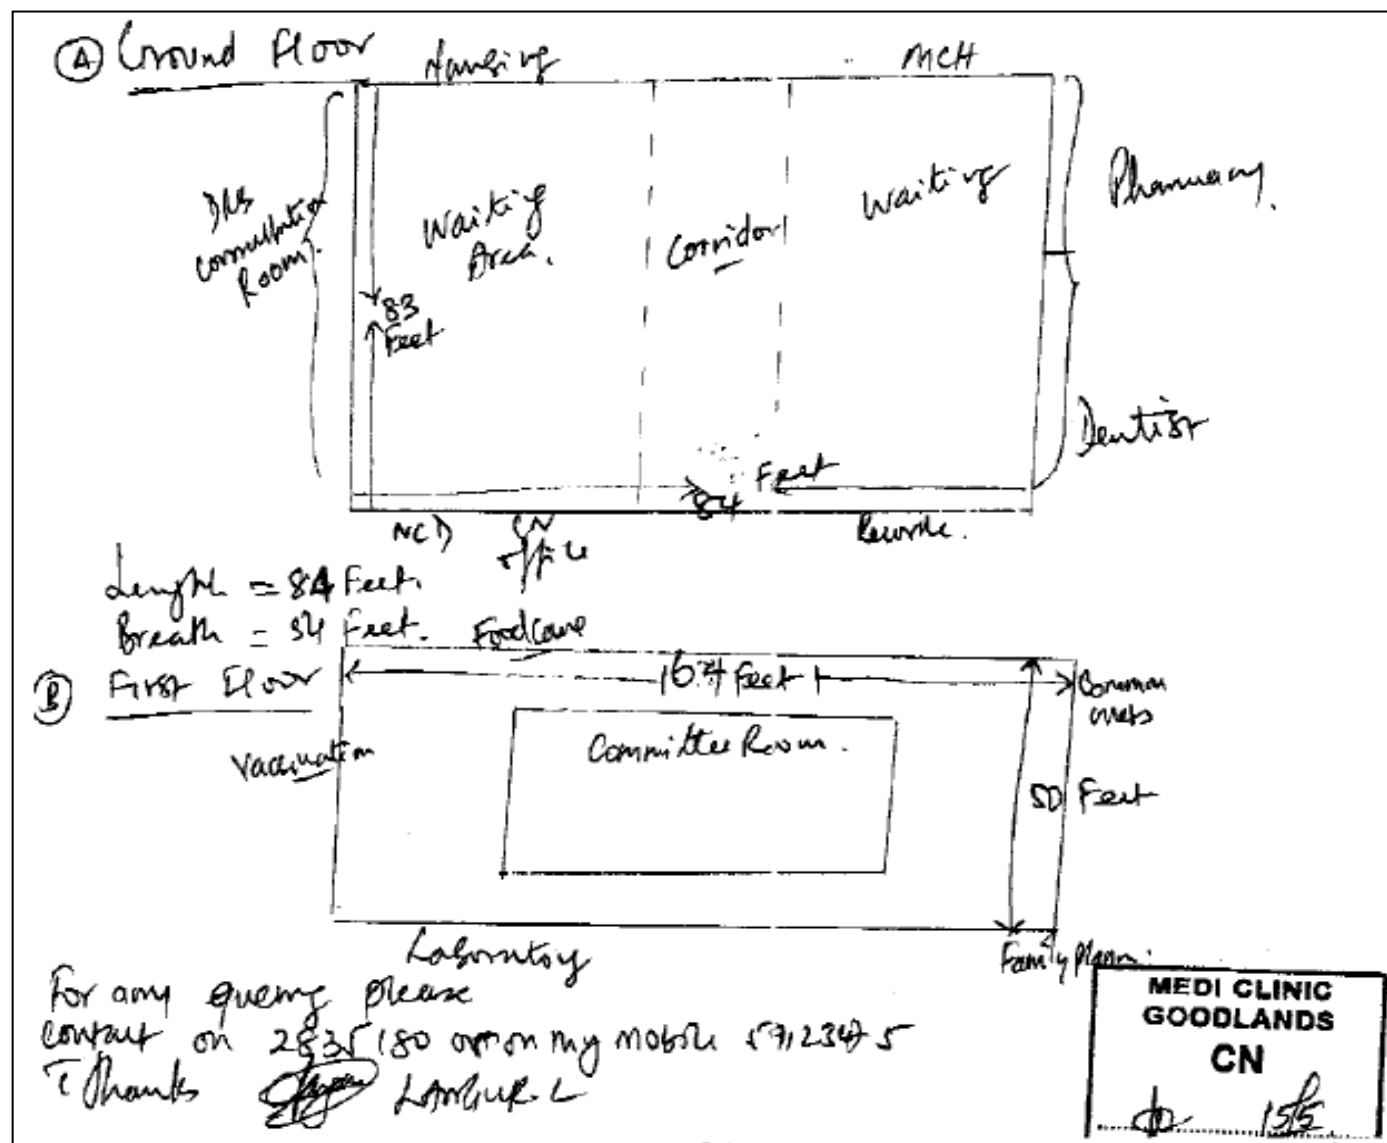 A Ground Floor
MCH
Drs
Consultation
Room
Waiting
Area.
Corridor
Waiting
Pharmacy.
83
Feet
Dentist
84 Feet
NCD
CN
office
Length = 84 Feet.
Breath = 34 Feet.
B First Floor
167 Feet
Common
Vaccination
Committee Room.
50 Feet
Laboratory
Family Plann.
For any query please
contact on 2835180 or on my mobile
Thanks
MEDI CLINIC
GOODLANDS
CN
15/5